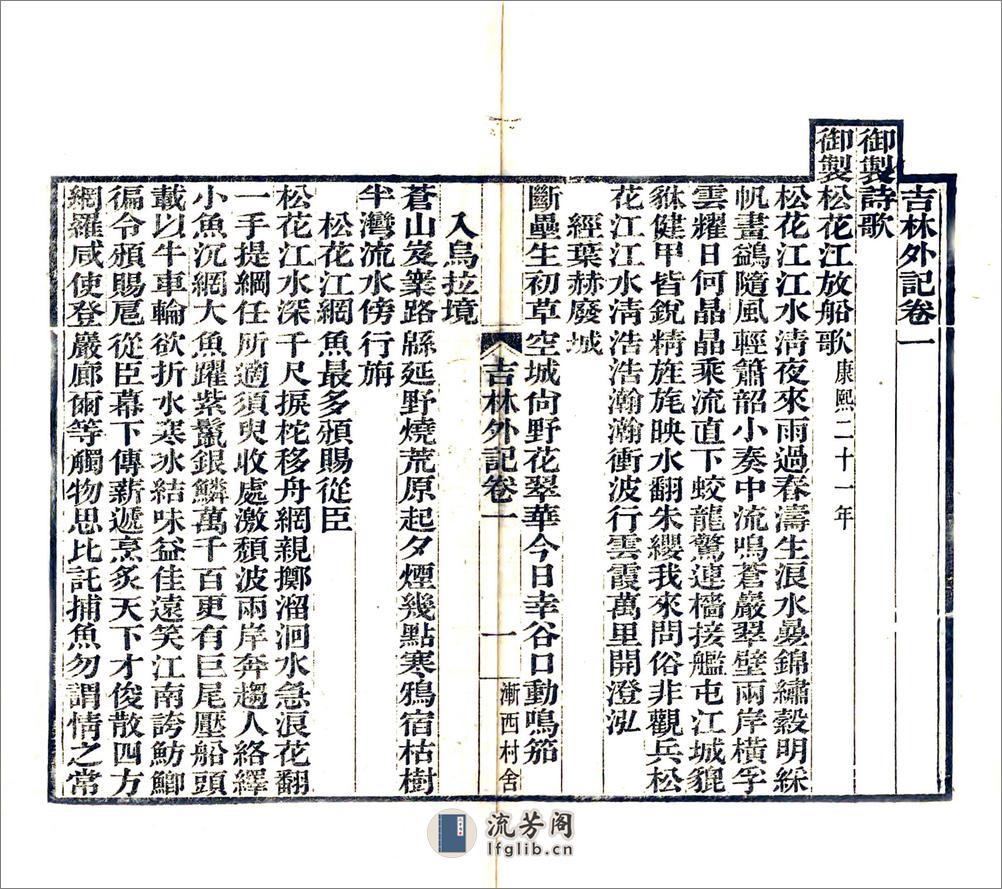 吉林外記卷一
御製詩歌
御製松花江放船歌康熙二十一年
松花江江水清夜來雨過春濤生浪水疊錦繡縠明綵
帆畫鷁隨風輕簫韶小奏中流鳴蒼巖翠壁兩岸橫孚
雲耀日何晶晶乘流直下蛟龍驚連檣接艦屯江城貔
貅健甲皆銳精旌旄映水翻朱纓我來問俗非觀兵松
花江江水淸浩浩瀚瀚衝波行雲霞萬里開澄泓
經葉赫廢城
斷壘生初草空城尙野花翠華今日幸谷口動鳴笳
吉林外記卷一
一
漸西村舍
入烏拉境
蒼山岌嶪路緜延野燒荒原起夕煙幾點寒鴉宿枯樹
半灣流水傍行旃
松花江網魚最多頒賜從臣
松花江水深千尺捩柁移舟網親擲溜洄水急浪花翻
一手提綱任所適須臾收處激頹波兩岸奔趨人絡繹
小魚沉網大魚躍紫鬣銀鱗萬千百更有巨尾壓船頭
載以牛車輪欲折水寒冰結味益佳遠笑江南誇魴鯽
徧令頒賜扈從臣幕下傳薪遞烹炙天下才俊散四方
網羅咸使登嚴廊爾等觸物思比託捕魚勿謂情之常
流芳阁
lfglib.cn